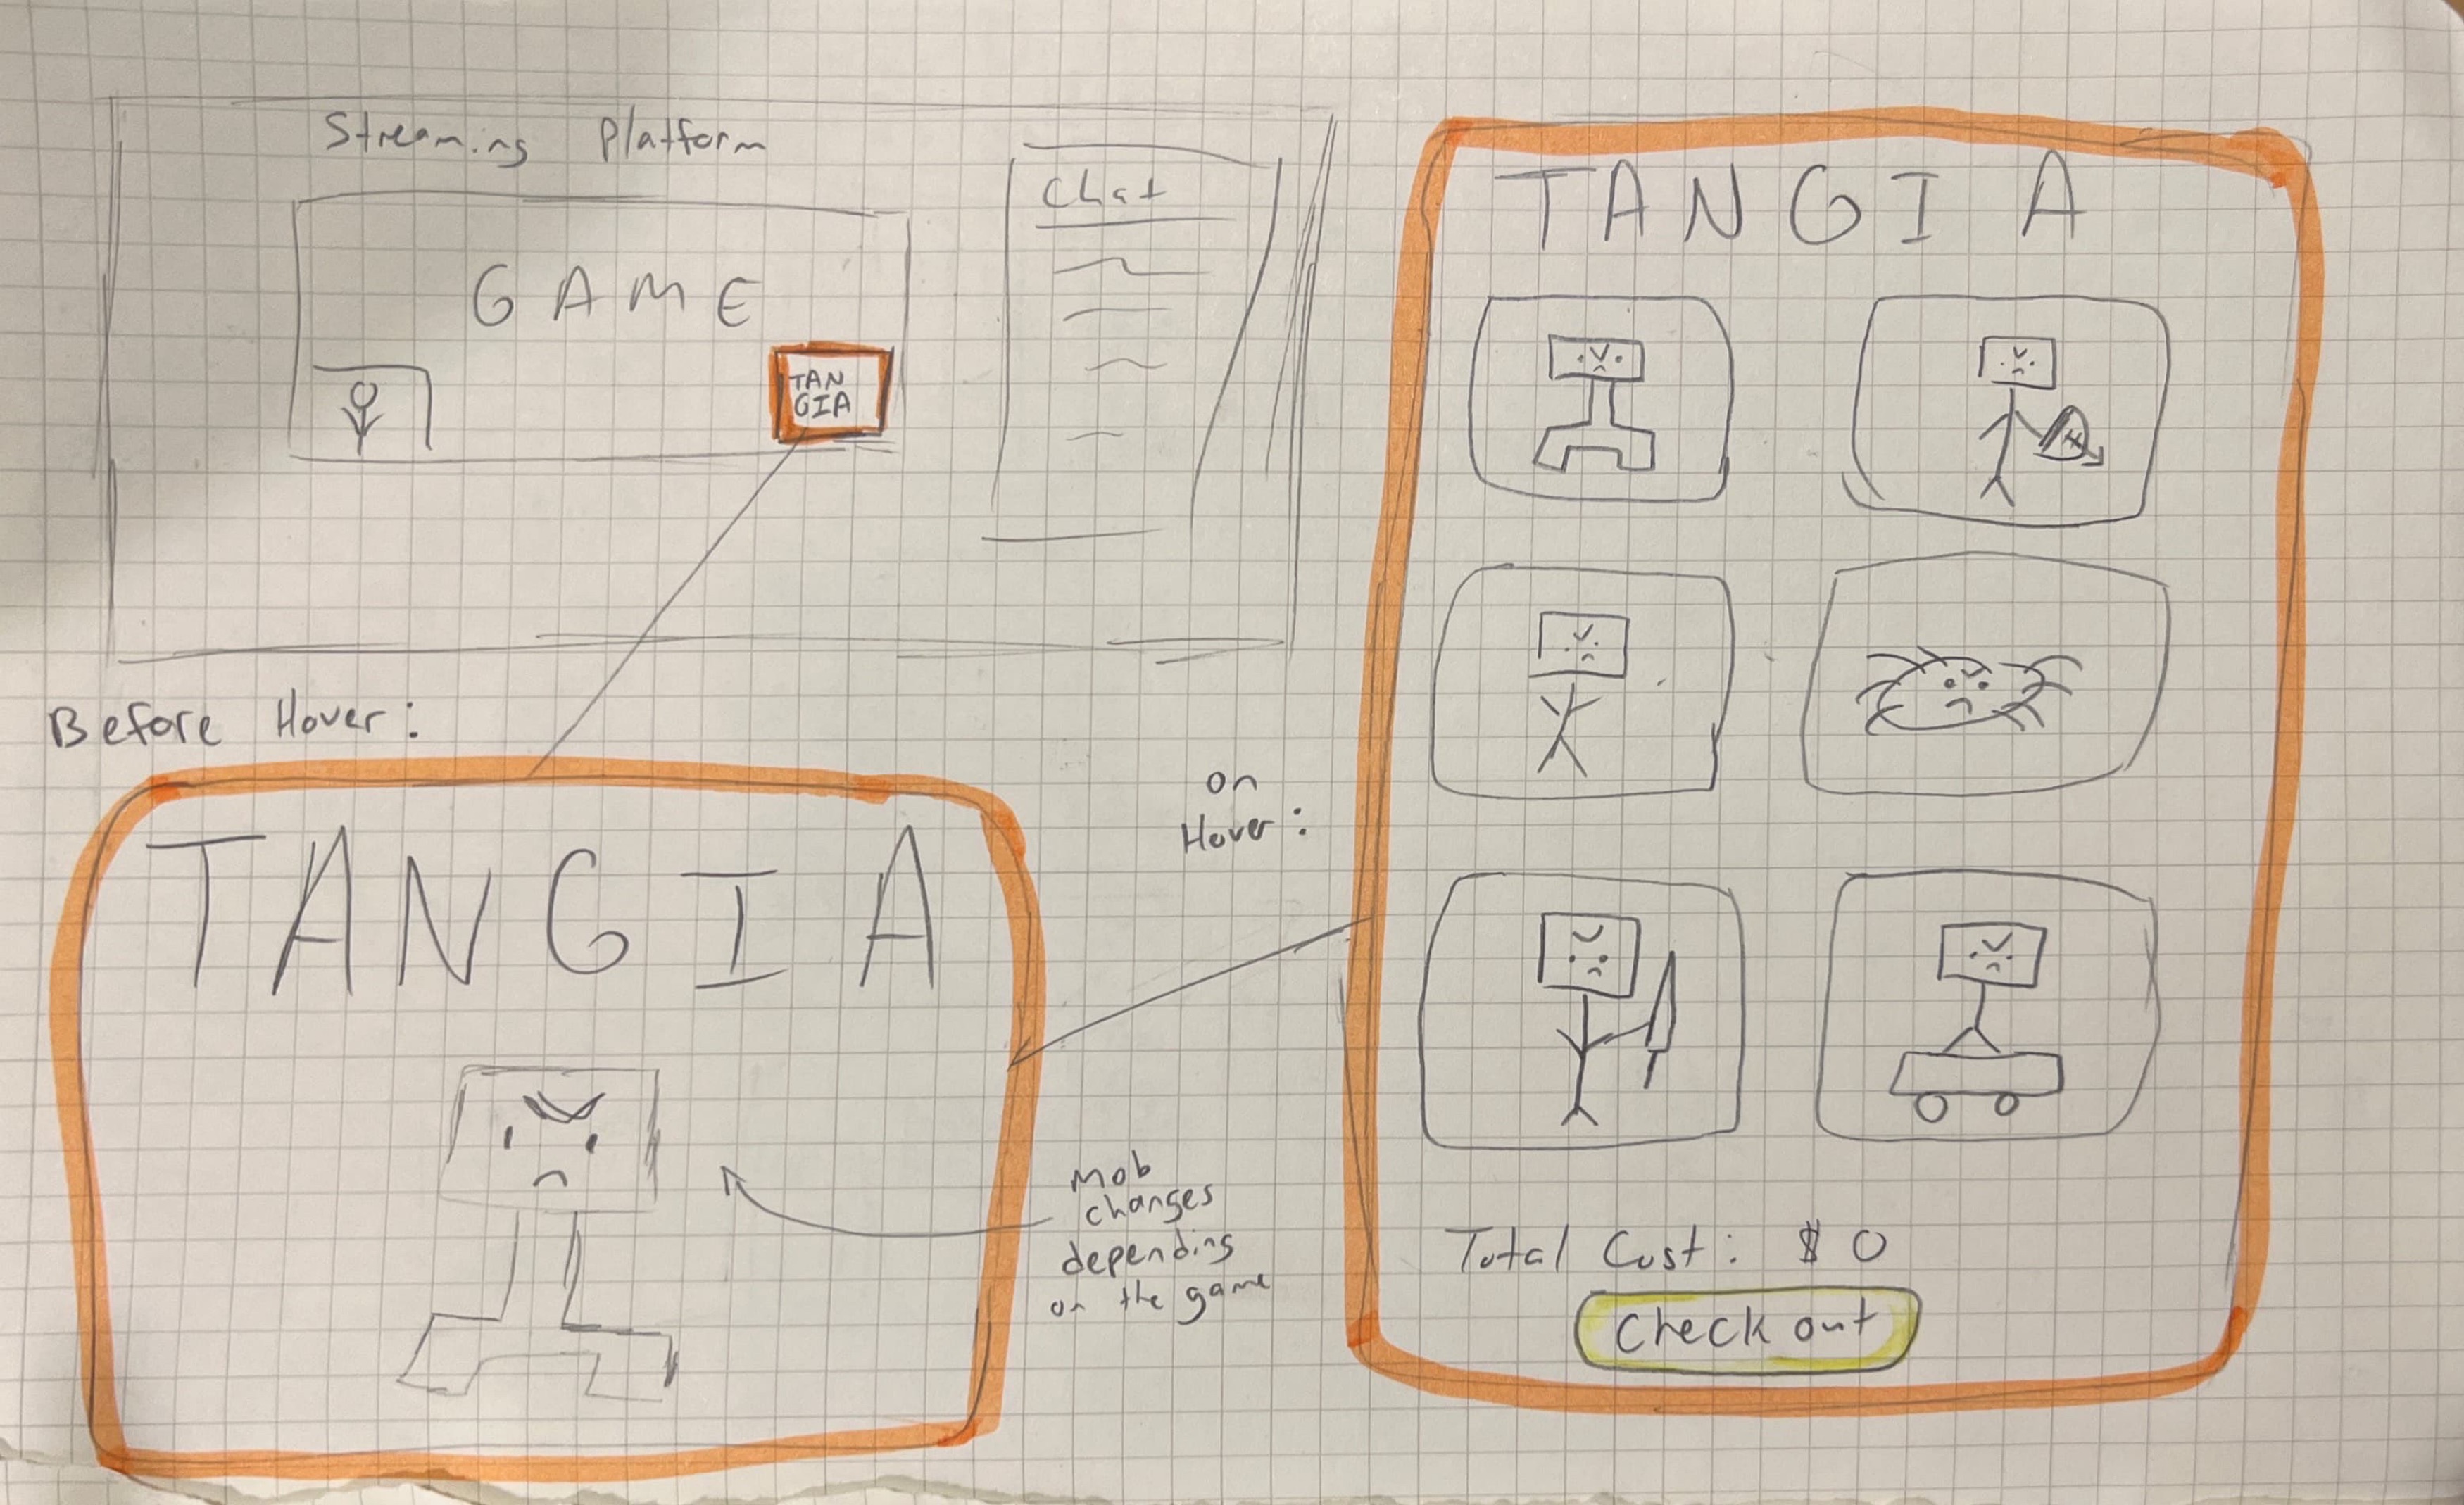 Streaming Platform
GAME
TAN
GIA
Chat
Before Hover:
TANGIA
mob
changes
depending
on the game
on
Hover:
TANGIA
Total Cost: $0
Check out